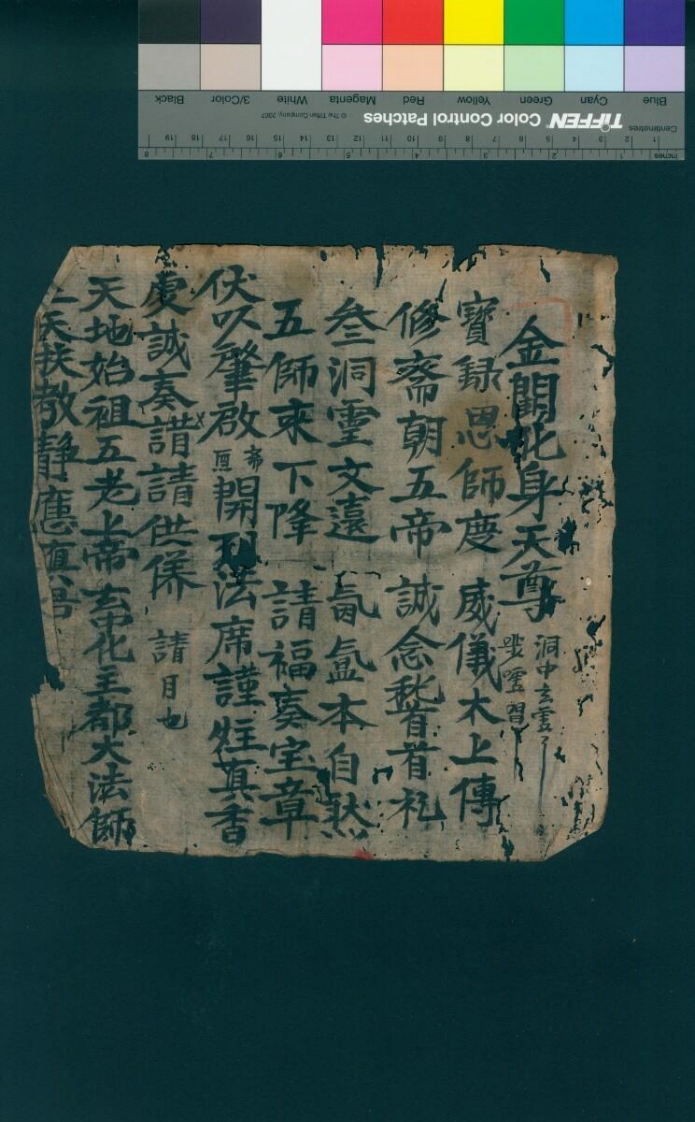 金闕化身天尊 洞中玄虛
寶録思師度 威儀太上傳
修齋朝五帝 誠念稽首礼
叁洞靈文遠 氤氳本自然
五師来下降 請福奏宝章
伏以肇啟 齋 醮 開 法席謹炷真香
虔誠奏請供养 請目也
天地始祖五老上帝玄中化主都大法師
天扶教静應真君
Blue Cyan Green Yellow Red Magenta White 3/Color Black
TIFFEN Color Control Patches © The Tiffen Company, 2007
Centimetres 1 2 3 4 5 6 7 8 9 10 11 12 13 14 15 16 17 18 19
Inches 1 2 3 4 5 6 7 8